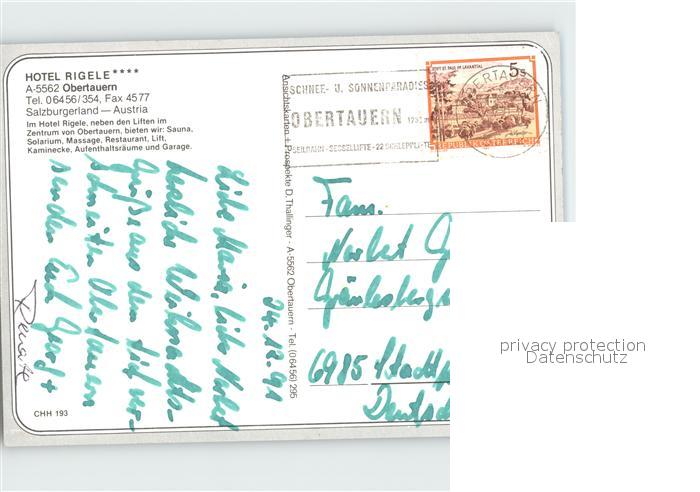 HOTEL RIGELE ****
A-5562 Obertauern
Tel. 06456/354, Fax 4577
Salzburgerland — Austria
Im Hotel Rigele, neben den Liften im
Zentrum von Obertauern, bieten wir: Sauna,
Solarium, Massage, Restaurant, Lift,
Kaminecke, Aufenthaltsräume und Garage.
SCHNEE- U. SONNENPARADIES
OBERTAUERN
SEILBAHN-SESSELLIFTE-22 SCHLEPPLI
STIFT ST. PAUL IM LAVANTTAL
5s
REPUBLIK ÖSTERREICH
OBERTAUERN
Ansichtskarten + Prospekte D. Thallinger - A-5562 Obertauern - Tel. (06456) 295
24.12.91
Liebe Maria, lieber Norbert
herzliche Weihnachts-
grüße aus dem tief ver-
schneiten Obertauern
senden Euch Gerd +
Renate
Fam.
Norbert G
6985 Stadtp
Deutsc
CHH 193
privacy protection
Datenschutz